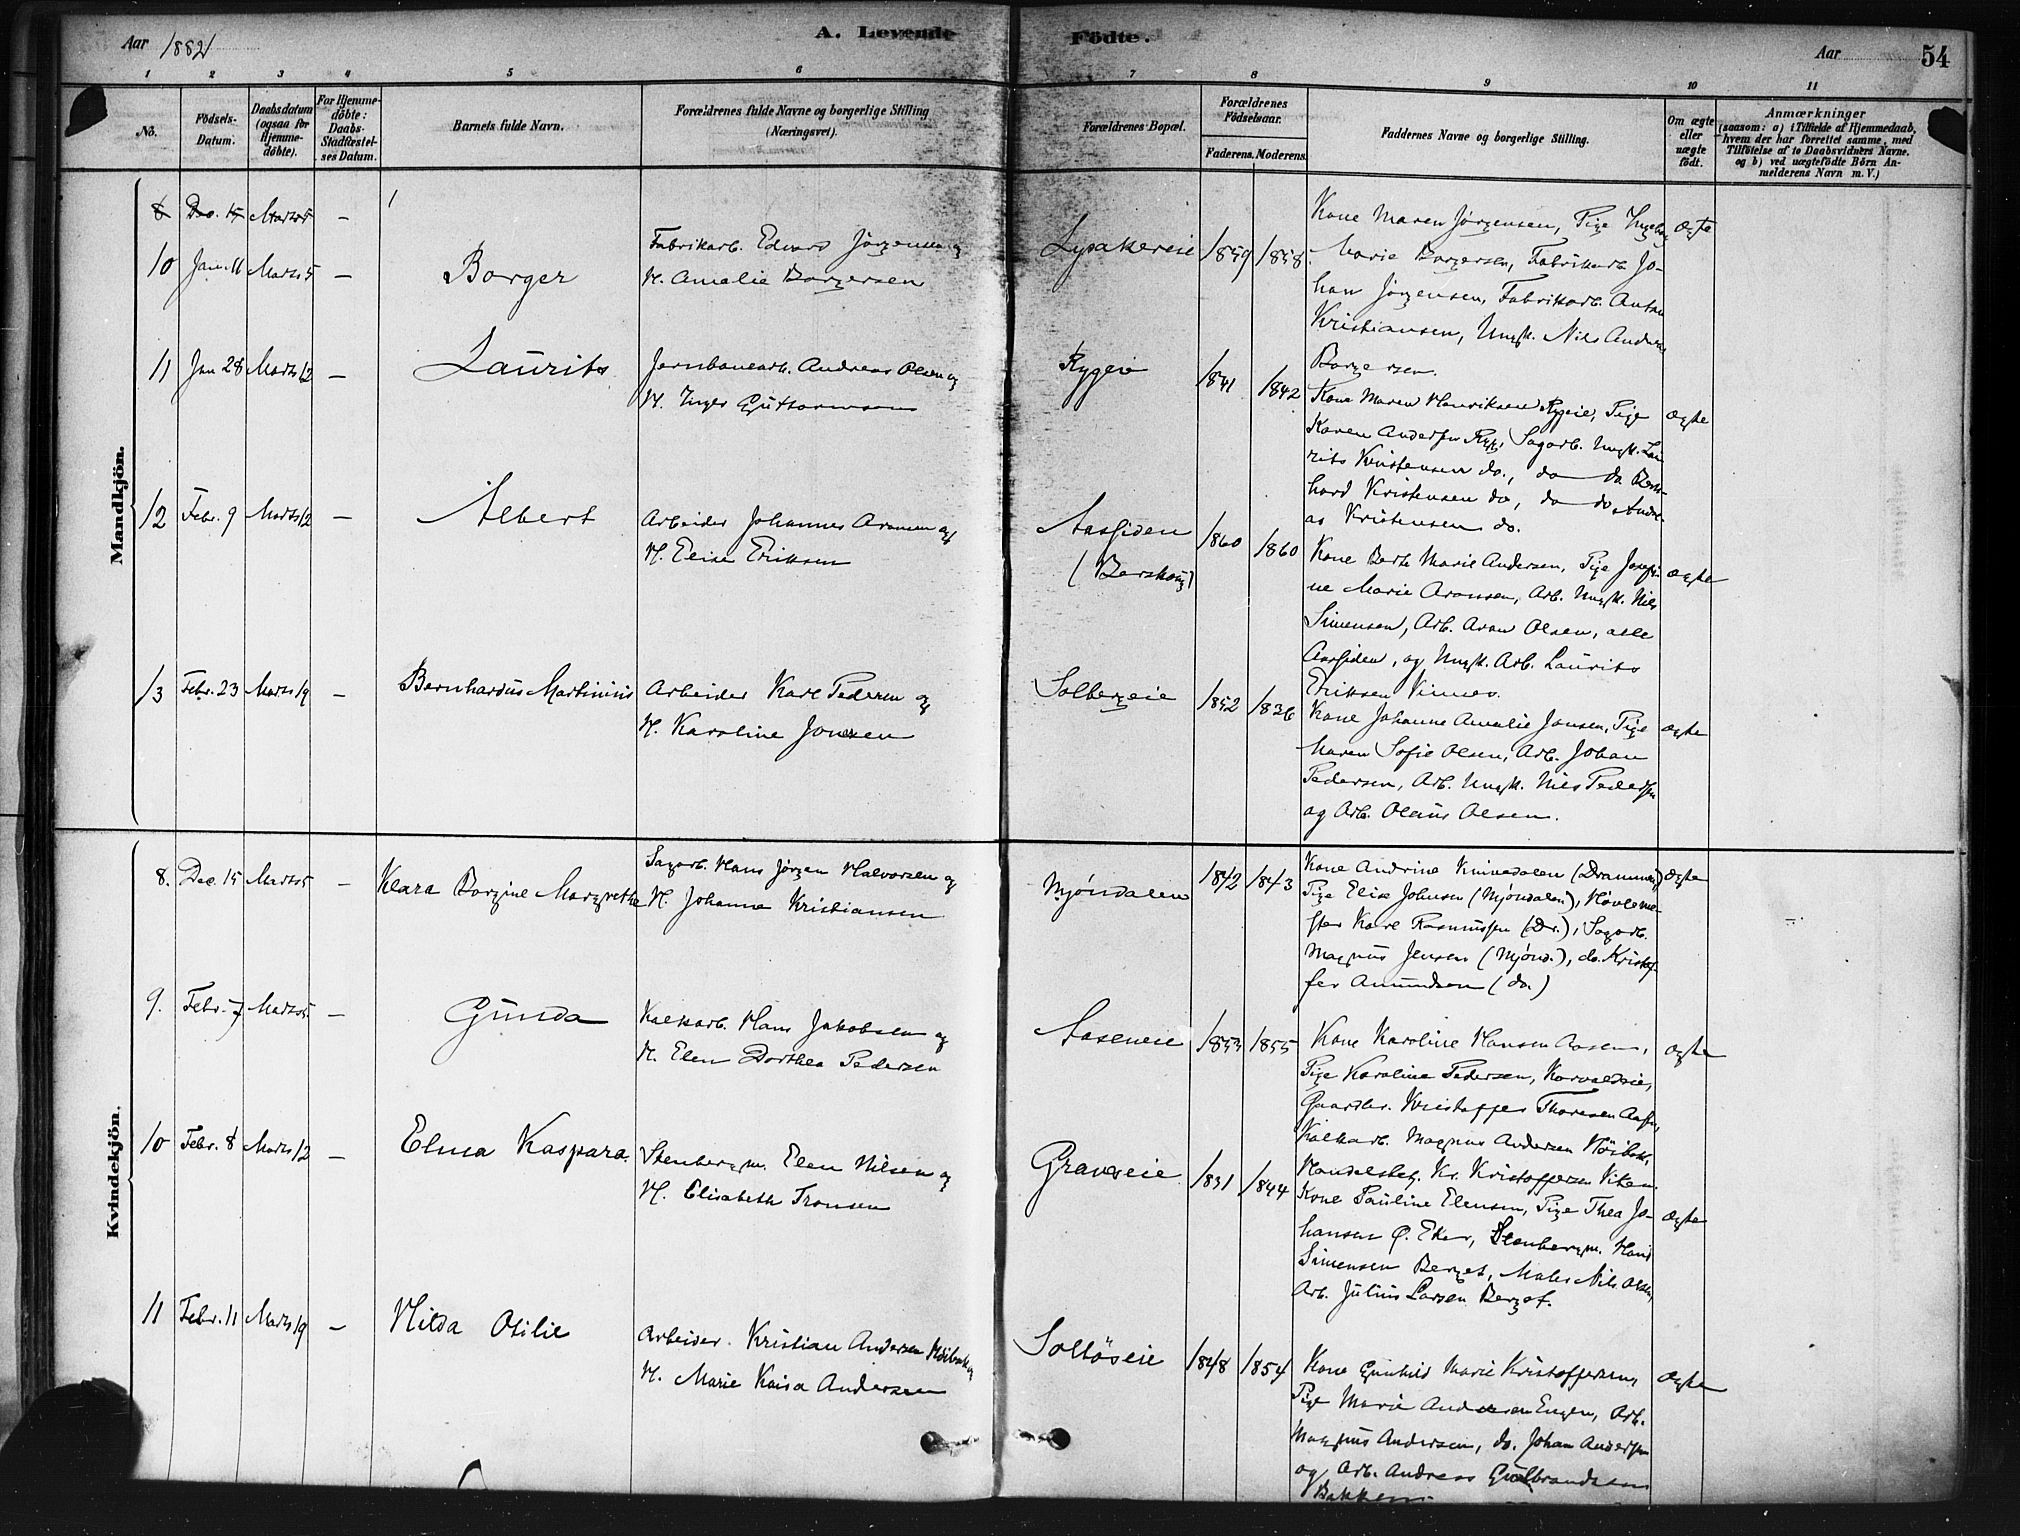 Aar 1882
A. Levende Födte.
Aar
54
1 2 3 4 5 6 7 8 9 10 11
No.
Födsels-Datum.
Daabsdatum (ogsaa for Hjemme-döbte).
For Hjemme-döbte: Daabs-Stadfæstel-ses Datum.
Barnets fulde Navn.
Forældrenes fulde Navne og borgerlige Stilling (Næringsvei).
Forældrenes Bopæl.
Forældrenes Födselsaar.
Faderens. Moderens.
Faddernes Navne og borgerlige Stilling.
Om ægte eller uægte födt.
Anmærkninger
(saasom: a) i Tilfælde af Hjemmedaab,
hvem der har forrettet samme, med
Tilföielse af to Daabsvidners Navne.
og b) ved uægtefödte Börn An-
melderens Navn m. V.)
Mandkjön.
8 Dec. 15 Marts 5 –
10 Jan. 11 Marts 5 – Borger
Fabrikarb. Edvard Jörgensen og
H. Amalie Borgersen
Lysakereie 1859 1858
Kone Maren Jörgensen, Pige Ingeborg
Marie Borgersen, Fabrikarb. Jo-
han Jörgensen, Fabrikarb. Anton
Kristiansen, Ungk. Nils Anders
Borgersen.
ægte
11 Jan 28 Marts 12 – Laurits
Jernbanearb. Andreas Olsen og
H. Inger Guttormsen
Rygeie 1841 1842
Kone Maren Henriksen Rygeie, Pige
Karen Andersen Ryg, Sagarb. Ungk. Lau
rits Kristensen do., do do Bern-
hard Kristensen do, do do Andre-
as Kristensen do.
ægte
12 Febr. 9 Marts 12 – Albert
Arbeider Johannes Aronsen og
H. Elise Eriksen
Aassiden
(Berskoug) 1860 1860
Kone Berthe Marie Andersen, Pige Josefi-
ne Marie Aronsen, Arb. Ungk. Nils
Simensen, Arb. Aron Olsen, alle
Aassiden, og Ungk. Arb. Laurits
Eriksen Vinnes.
ægte
13 Febr. 23 Marts 19 – Bernhardus Martinius
Arbeider Karl Pedersen og
H. Karoline Jonsen
Solbergeie 1852 1836
Kone Johanne Amalie Jansen, Pige
Maren Sofie Olsen, Arb. Johan
Pedersen, Arb. Ungk. Nils Pedersen
og Arb. Olaus Olsen.
ægte
Kvindekjön.
8. Dec. 15 Marts 5 – Klara Borgine Margrethe
Sagarb. Hans Jörgen Halvorsen og
H. Johanne Kristiansen
Mjöndalen 1842 1843
Kone Andrine Knivedalen (Drammen)
Pige Elise Johnsen (Mjöndalen), Hövleme-
ster Karl Rasmussen (Dr.), Sagarb.
Magnus Jensen (Mjönd.), do. Kristof-
fer Amundsen (do.)
ægte
9. Febr. 7 Marts 5 – Gunda
Kalkarb. Hans Jakobsen og
H. Elen Dorthea Pedersen
Aaseneie 1853 1855
Kone Karoline Hansen Aasen,
Pige Karoline Pedersen, Korvaldeie,
Gaardbr. Kristoffer Thoresen Aasen,
Kalkarb. Magnus Andersen Höibak,
Handelsbetj. Kr. Kristoffersen Viken
ægte
10 Febr. 8 Marts 12 – Elma Kaspara.
Stenbergm. Elen Nilsen og
H. Elisabeth Tronsen
Gravseie 1831 1844
Kone Pauline Elensen, Pige Thea Jo-
hansen Ö. Eker, Stenbergm. Hans
Simensen Berget, Maler Nils Olsen,
Arb. Julius Larsen Berget.
ægte
11 Febr. 11 Marts 19 – Hilda Otilie
Arbeider Kristian Andersen Höibak og
H. Marie Kaisa Andersen
Soltöseie 1848 1854
Kone Gunhild Marie Kristoffersen,
Pige Marie Andersen Engen, Arb.
Magnus Andersen, do. Johan Andersen
og Arb. Andreas Gulbrandsen
Bakken
ægte